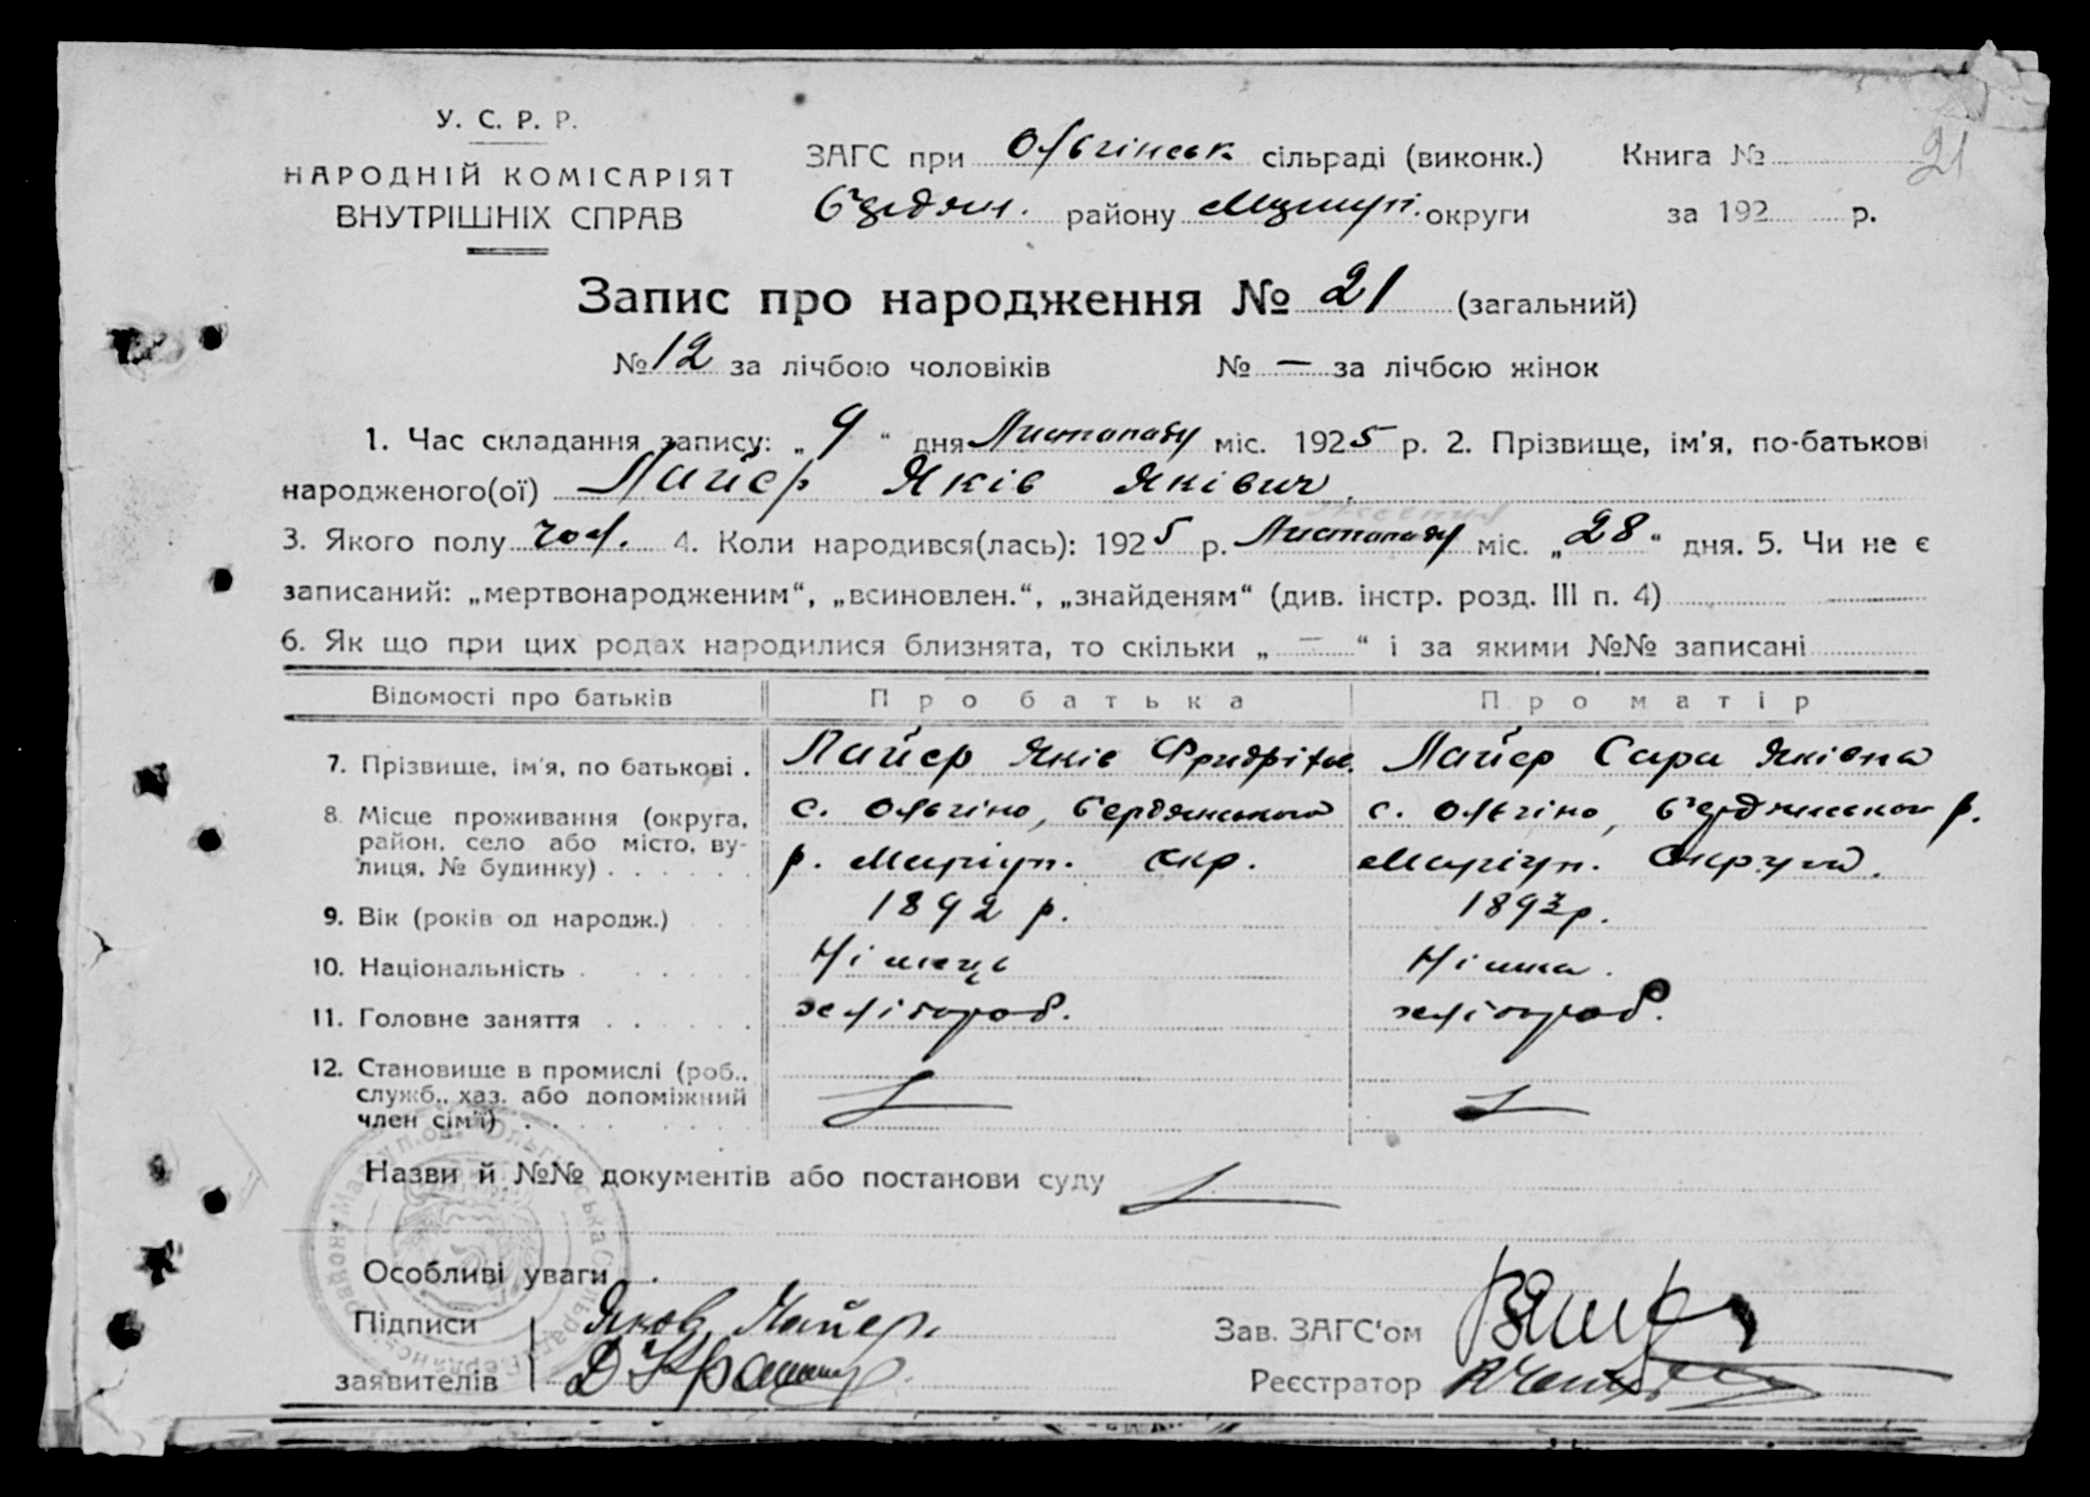 У. С. Р. Р.
НАРОДНІЙ КОМІСАРІЯТ
ВНУТРІШНІХ СПРАВ
ЗАГС при Ольгінськ сільраді (виконк.) Книга №
21
Бердян. району Маріуп. округи за 192 р.
Запис про народження № 21 (загальний)
№ 12 за лічбою чоловіків № — за лічбою жінок
1. Час складання запису: „ 9 “ дня Листопаду міс. 1925 р. 2. Прізвище, ім'я, по-батькові
народженого(ої) Майєр Яків Яківич.
3. Якого полу чол. 4. Коли народився(лась): 1925 р. Листопаду міс. „28“ дня. 5. Чи не є
записаний: „мертвонародженим“, „всиновлен.“, „знайденям“ (див. інстр. розд. III п. 4)
6. Як що при цих родах народилися близнята, то скільки „ — “ і за якими №№ записані
Відомості про батьків Про батька Про матір
7. Прізвище, ім'я, по батькові . Майєр Яків Фридріхов. Майєр Сара Яківна
8. Місце проживання (округа, район, село або місто, вулиця, № будинку) . . . . . . с. Ольгіно, Бердянського р. Маріуп. окр. с. Ольгіно, Бердянськог р. Маріуп. Округи.
9. Вік (років од народж.) 1892 р. 1893р.
10. Національність . Німець Німка.
11. Головне заняття . . . . . . хлібороб. хлібороб.
12. Становище в промислі (роб., служб., хаз. або допоміжний член сім'ї) . . . .
Назви й №№ документів або постанови суду
Особливі уваги
Підписи Яков Майер. Зав. ЗАГС'ом
заявителів Реєстратор